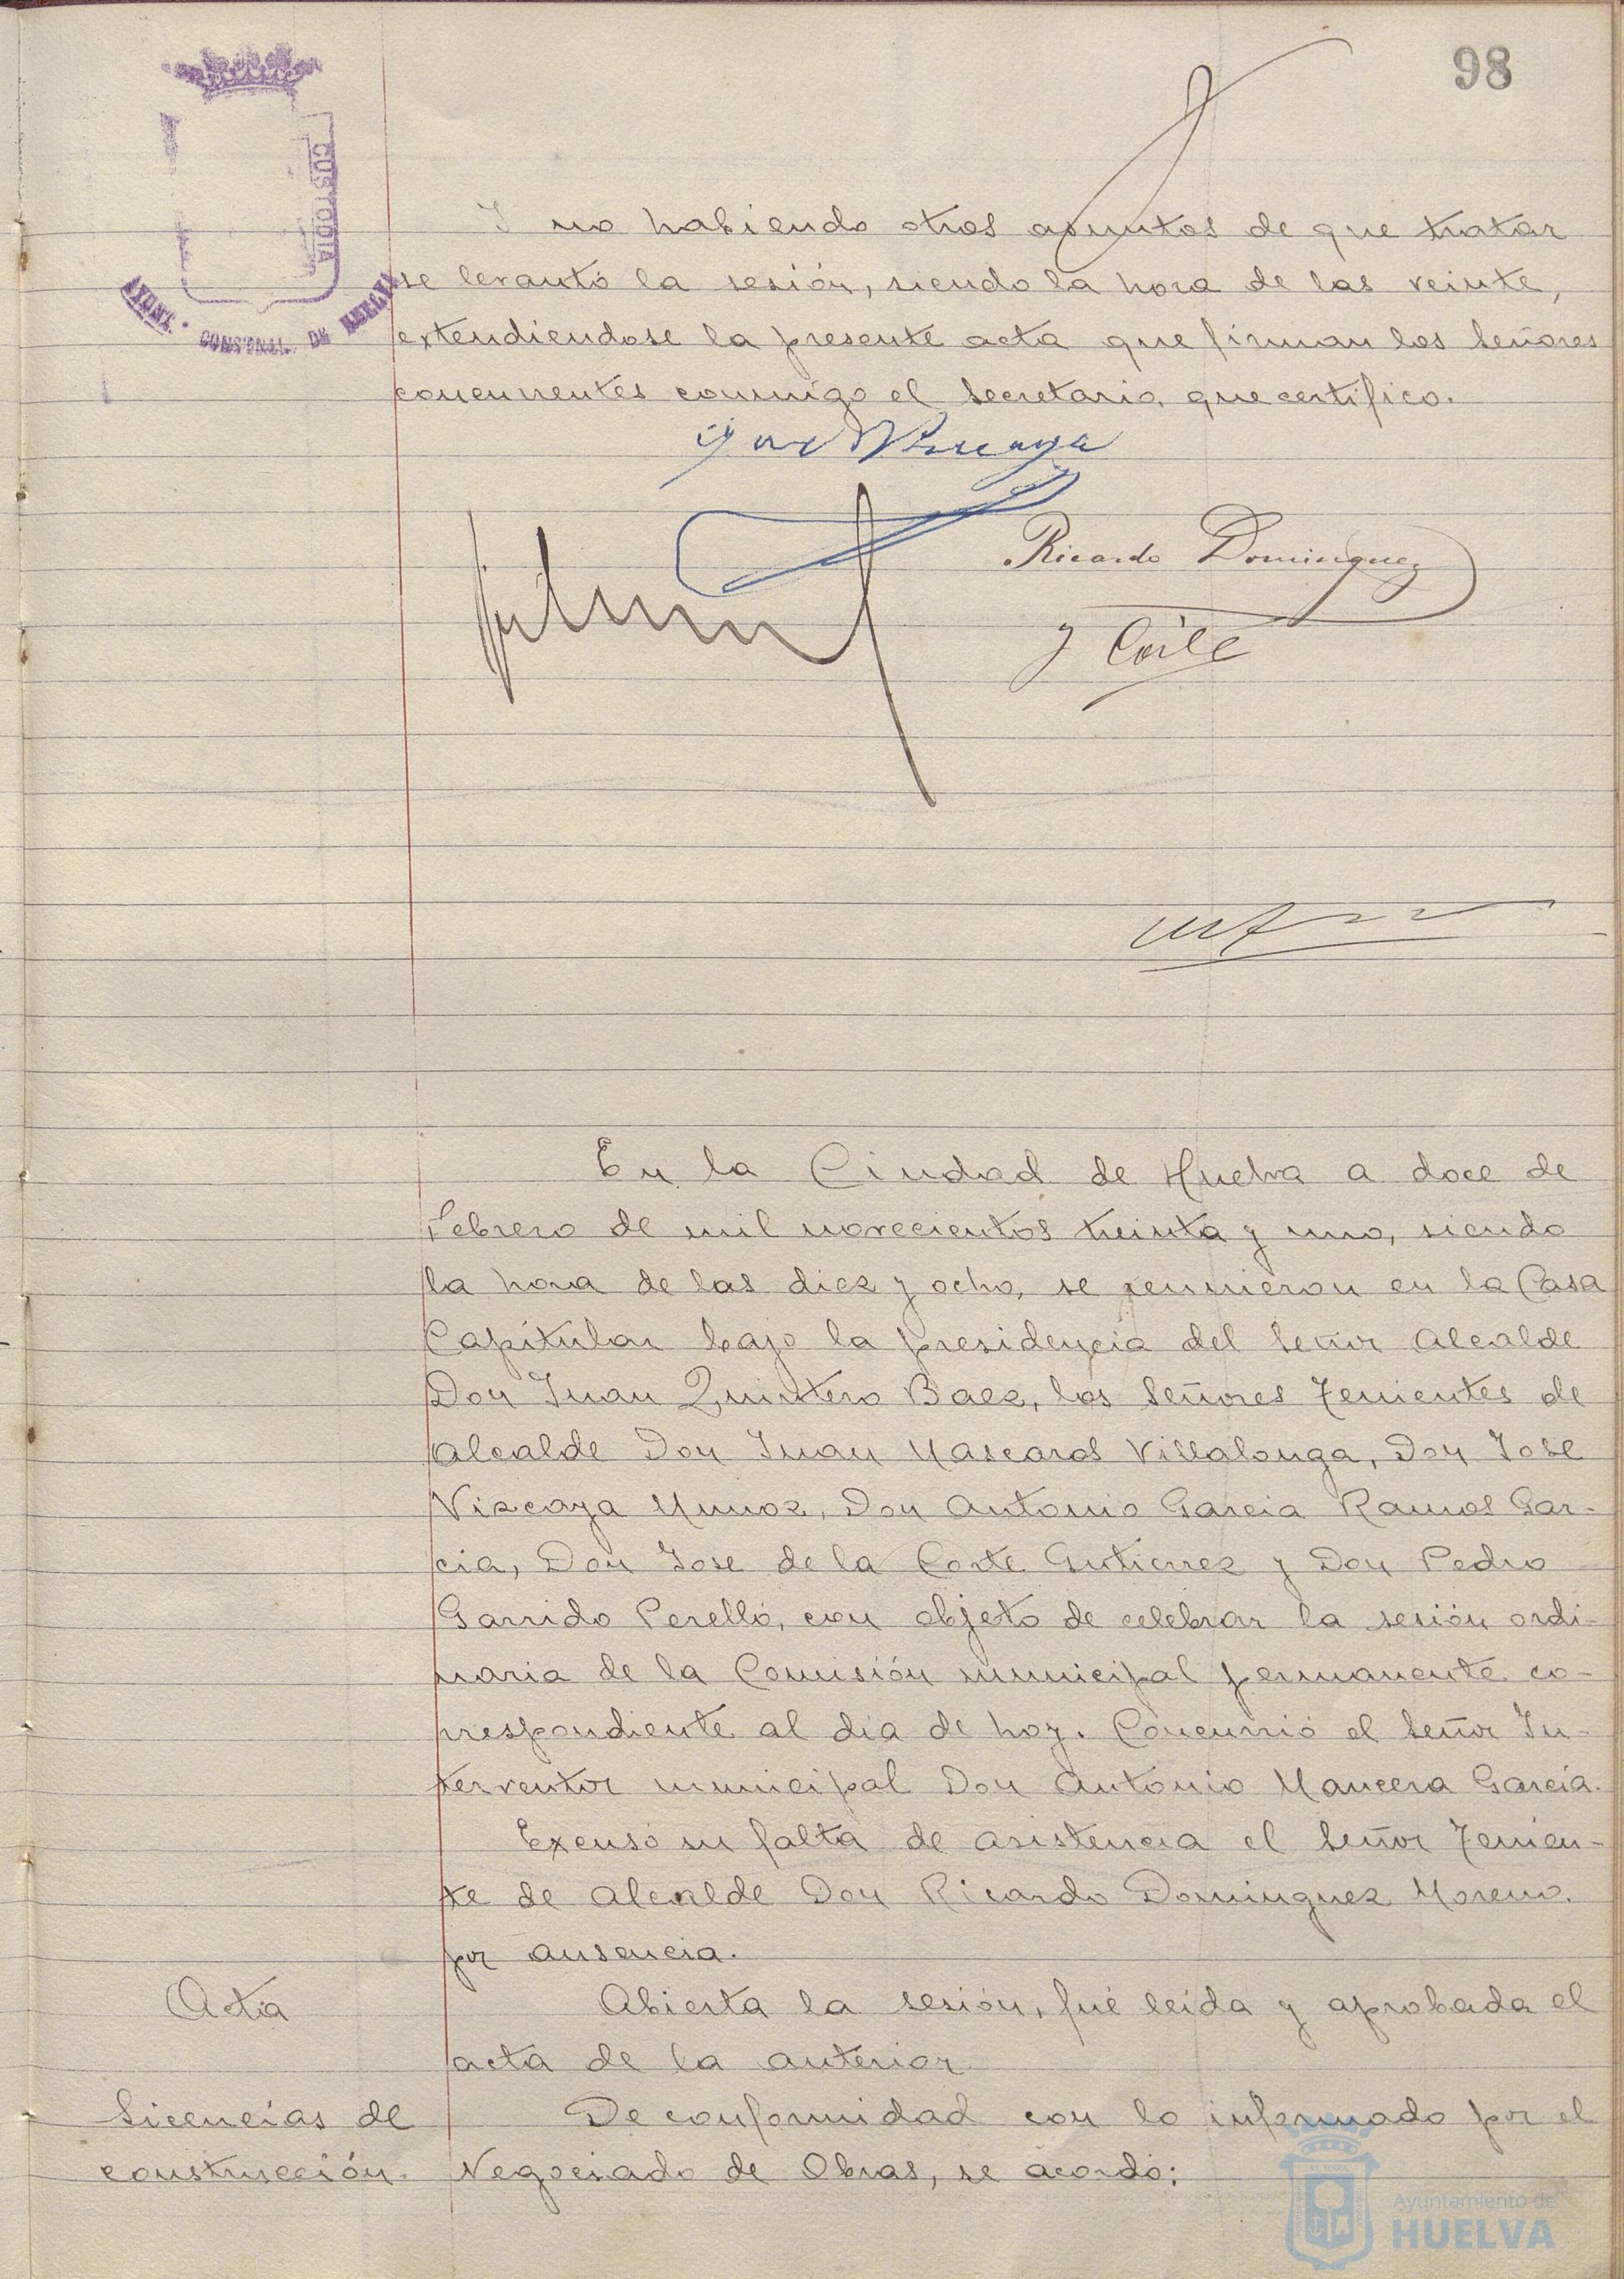 98
CUSTODIA
CONSTNAL. DE HUELVA
Y no habiendo otros asuntos de que tratar
se levantó la sesión, siendo la hora de las veinte,
extendiendose la presente acta que firman los Señores
concurrentes conmigo el Secretario, que certifico.
Ricardo Dominguez
J Corte
En la Ciudad de Huelva a doce de
Febrero de mil novecientos treinta y uno, siendo
la hora de las diez y ocho, se reunieron en la Casa
Capitular bajo la presidencia del Señor Alcalde
Don Juan Quintero Baez, los Señores Tenientes de
Alcalde Don Juan Mascaros Villalonga, Don José
Vizcaya Munoz, Don Antonio Garcia Ramos Gar-
cia, Don Jose de la Corte Gutierrez y Don Pedro
Garrido Perelló, con objeto de celebrar la sesión ordi-
naria de la Comisión municipal permanente co-
rrespondiente al dia de hoy. Concurrió el Señor In-
terventor municipal Don Antonio Mancera García.
Excusó su falta de asistencia el Señor Tenien-
te de Alcalde Don Ricardo Dominguez Moreno.
por ausencia.
Acta
Abierta la sesión, fué leída y aprobada el
acta de la anterior.
Licencias de
construcción.
De conformidad con lo informado por el
Negociado de Obras, se acordó:
Ayuntamiento de
HUELVA